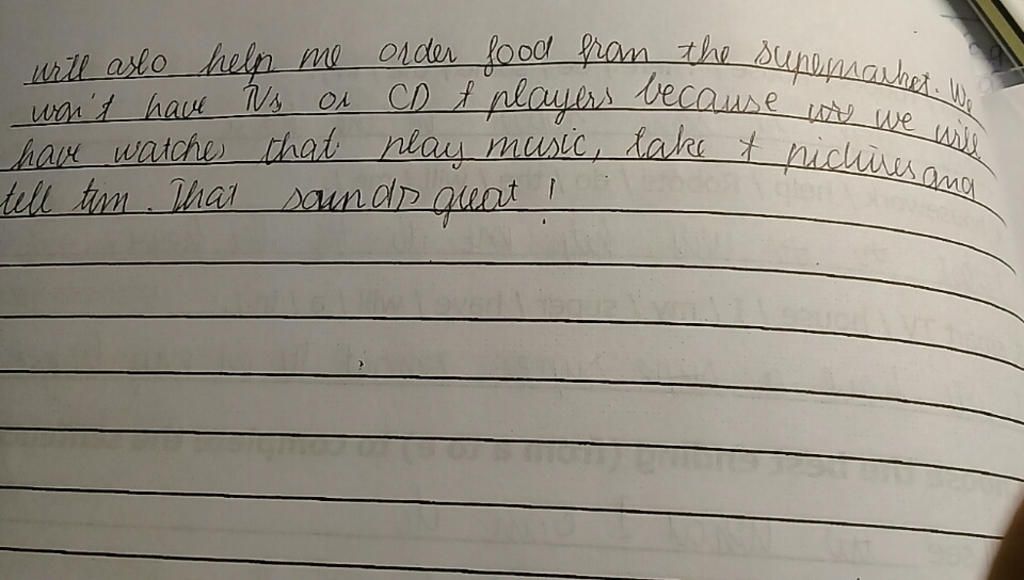 will aslo help me order food from the supermarket. We
won't have TVs or CD players because we will
have watches that play music, take pictures and
tell tim. That sounds great!